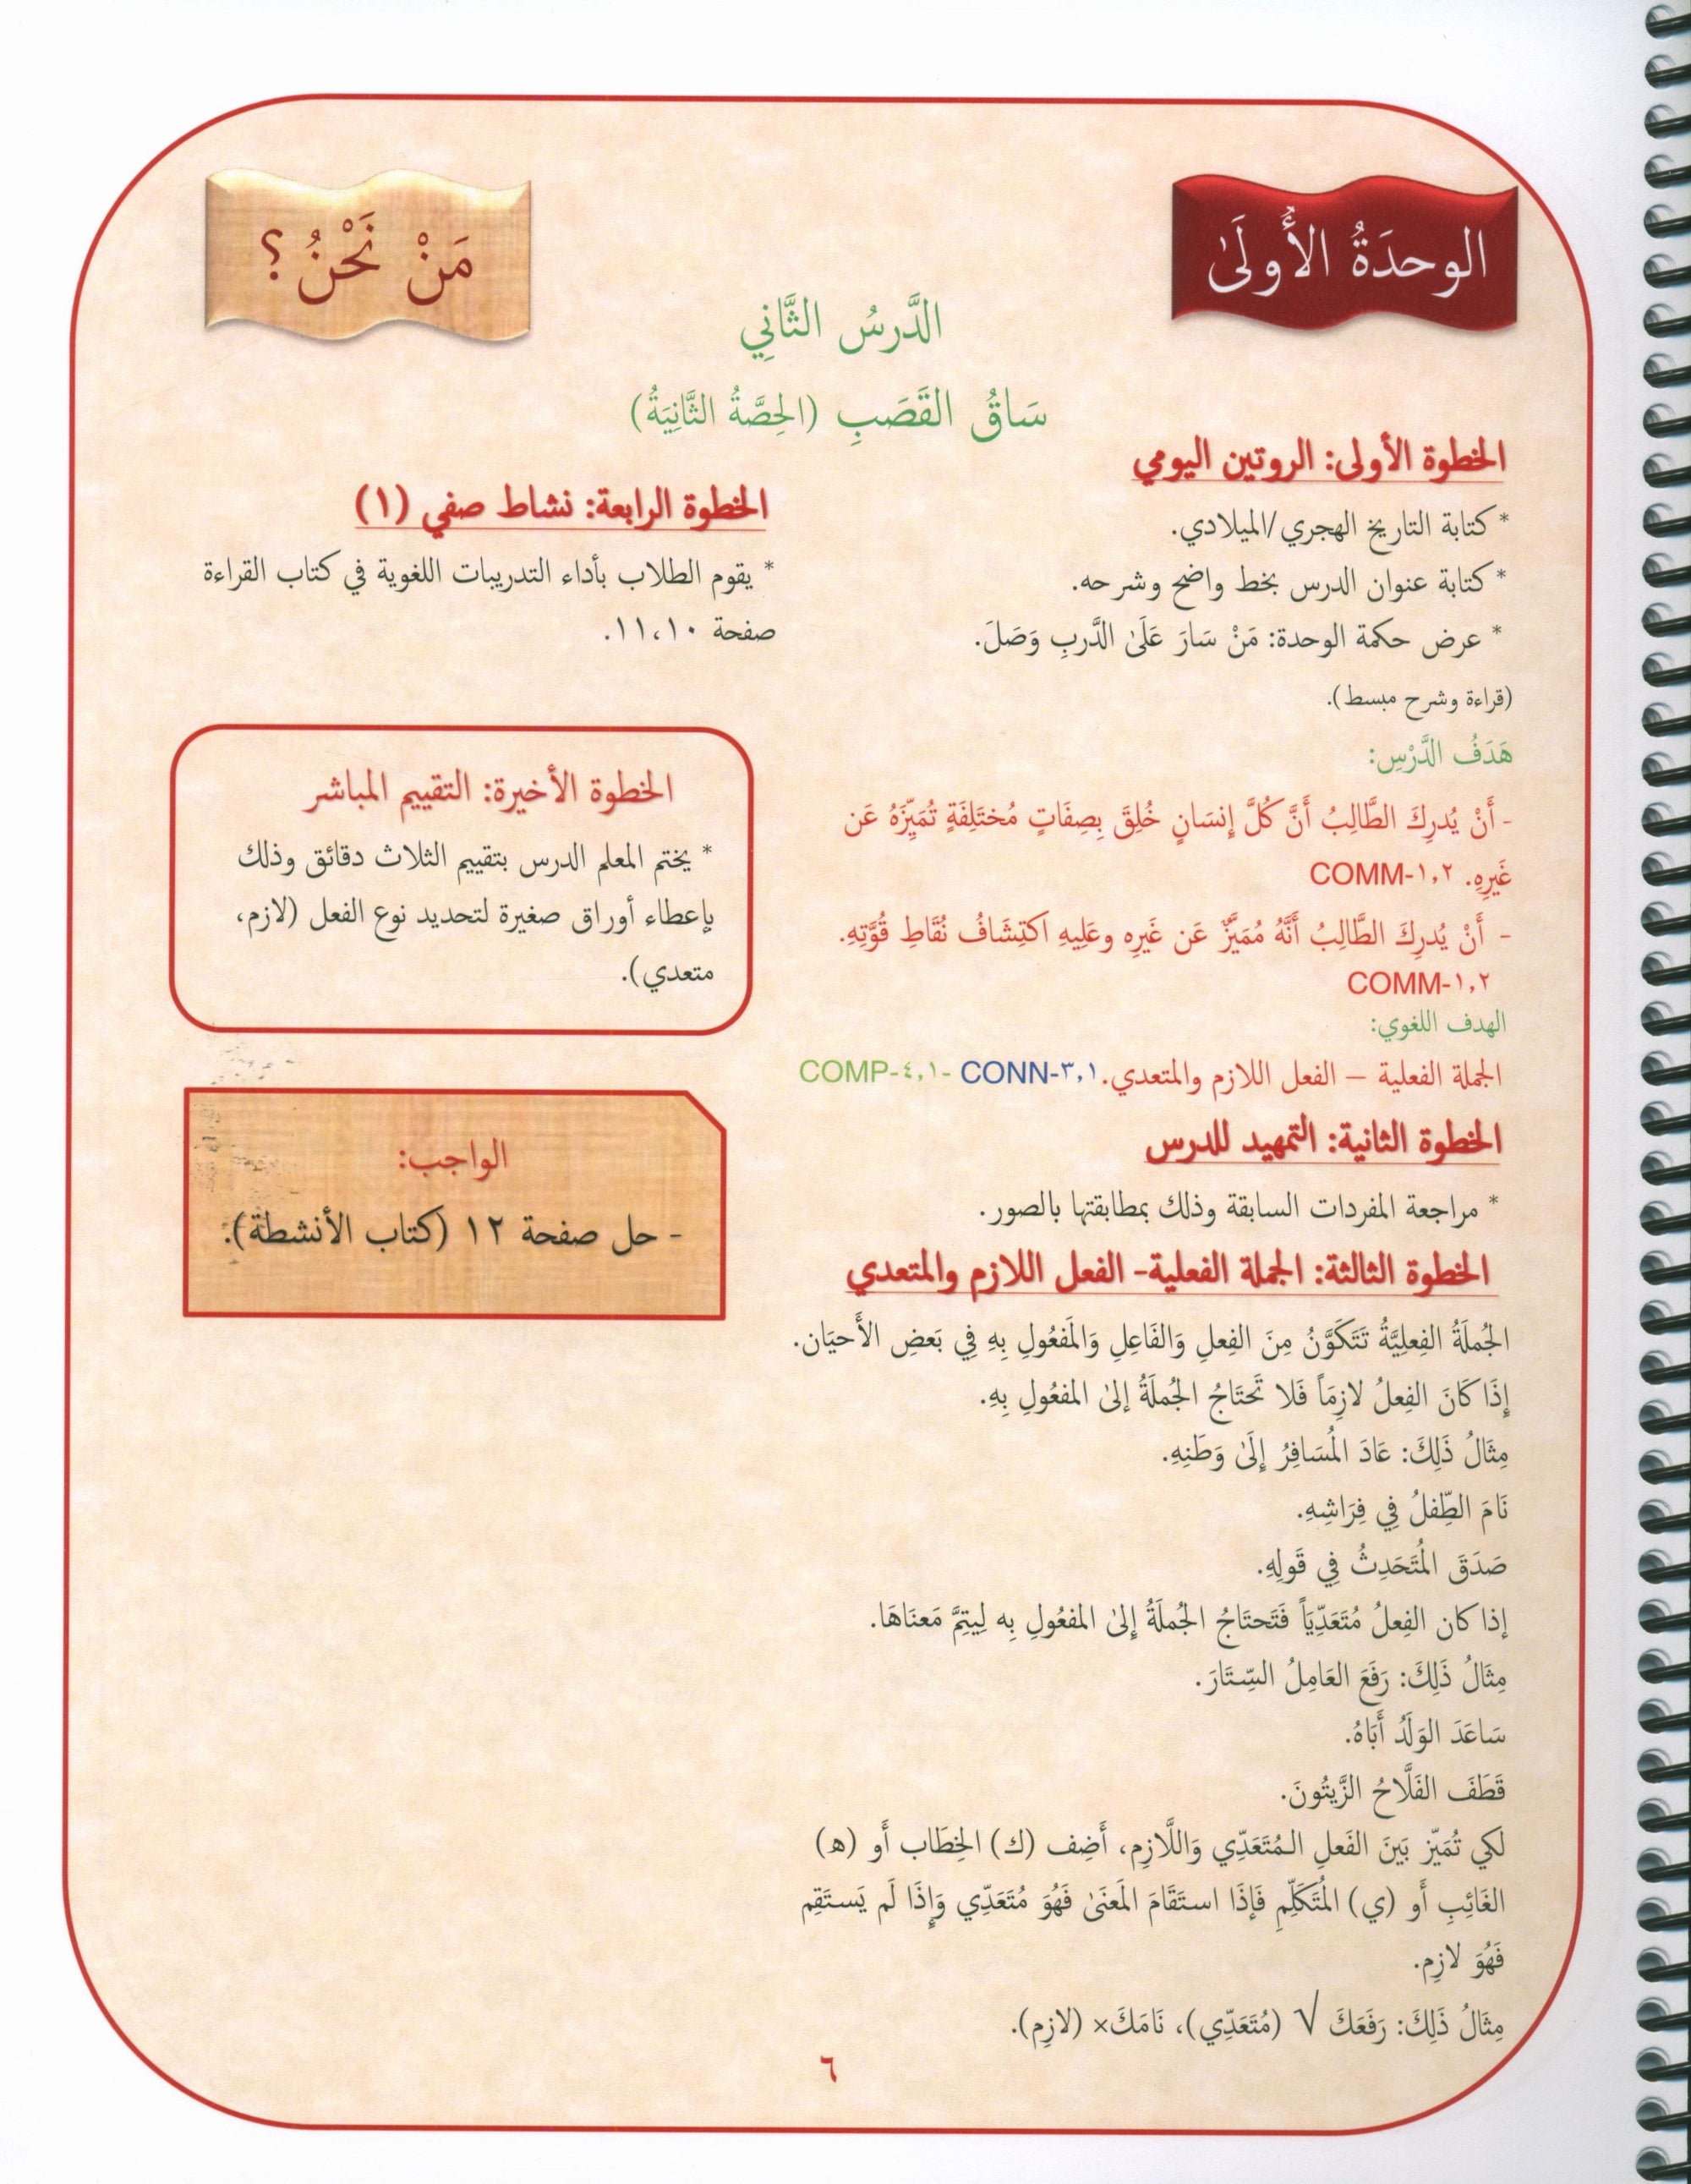 الوحدَةُ الأُولَىٰ
مَنْ نَحْنُ؟
الدَّرسُ الثَّانِي
سَاقُ القَصَبِ (الحِصَّةُ الثَّانِيَةُ)
الخطوة الأولى: الروتين اليومي
* كتابة التاريخ الهجري/الميلادي.
* كتابة عنوان الدرس بخط واضح وشرحه.
* عرض حكمة الوحدة: مَنْ سَارَ عَلَىٰ الدَّربِ وَصَلَ.
(قراءة وشرح مبسط).
هَدَفُ الدَّرْسِ:
- أَنْ يُدرِكَ الطَّالِبُ أَنَّ كُلَّ إِنسَانٍ خُلِقَ بِصِفَاتٍ مُختَلِفَةٍ تُمَيِّزَهُ عَن
غَيرِهِ. COMM-١,٢
- أَنْ يُدرِكَ الطَّالِبُ أَنَّهُ مُمَيَّزٌ عَن غَيرِه وعَلِيهِ اكتِشَافُ نُقَاطِ قُوَّتِهِ.
COMM-١,٢
الهدف اللغوي:
الجملة الفعلية – الفعل اللازم والمتعدي. CONN-٣,١ -COMP-٤,١
الخطوة الثانية: التمهيد للدرس
* مراجعة المفردات السابقة وذلك بمطابقتها بالصور.
الخطوة الثالثة: الجملة الفعلية- الفعل اللازم والمتعدي
الجُملَةُ الفِعلِيَّةُ تَتَكَوَّنُ مِنَ الفِعلِ وَالفَاعِلِ وَالمَفعُولِ بِهِ فِي بَعضِ الأَحيَان.
إِذَا كَانَ الفِعلُ لازِمَاً فَلا تَحتَاجُ الجُملَةُ إلىٰ المفعُولِ بِهِ.
مِثَالُ ذَلِكَ: عَادَ المُسَافِرُ إِلَىٰ وَطَنِهِ.
نَامَ الطِّفلُ فِي فِرَاشِهِ.
صَدَقَ المُتَحَدِثُ فِي قَولِهِ.
إذا كان الفِعلُ مُتَعَدِّيَاً فَتَحتَاجُ الجُملَةُ إِلىٰ المفعُولِ بِه لِيتِمَّ مَعنَاهَا.
مِثَالُ ذَلِكَ: رَفَعَ العَامِلُ السِّتَارَ.
سَاعَدَ الوَلَدُ أَبَاهُ.
قَطَفَ الفَلَّاحُ الزَّيتُونَ.
لكي تُمَيّز بَينَ الفَعلِ المُتَعَدِّي وَاللَّازِم، أَضِف (ك) الخِطَاب أَو (ه)
الغَائِبِ أَو (ي) المُتَكَلِّمِ فَإذَا استَقَامَ المَعنَىٰ فَهُوَ مُتَعَدِّي وَإِذَا لَم يَستَقِم
فَهُوَ لازِم.
مِثَالُ ذَلِكَ: رَفَعَكَ √ (مُتَعَدِّي)، نَامَكَ× (لازِم).
الخطوة الرابعة: نشاط صفي (١)
* يقوم الطلاب بأداء التدريبات اللغوية في كتاب القراءة
صفحة ١١،١٠.
الخطوة الأخيرة: التقييم المباشر
* يختم المعلم الدرس بتقييم الثلاث دقائق وذلك
بإعطاء أوراق صغيرة لتحديد نوع الفعل (لازم،
متعدي).
الواجب:
- حل صفحة ١٢ (كتاب الأنشطة).
٦